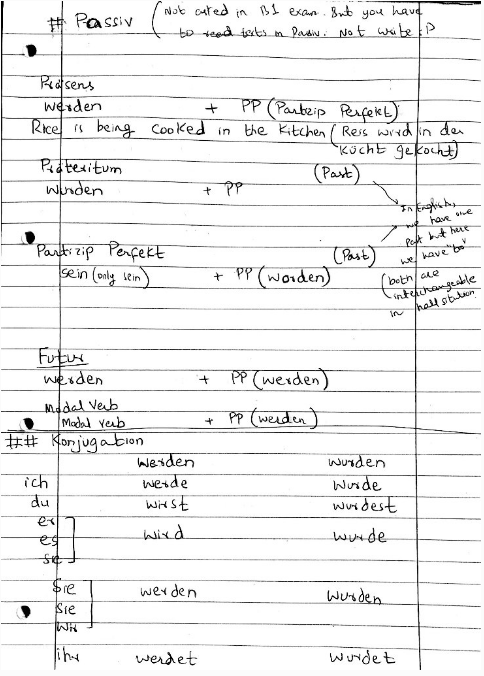 # Passiv (Not asked in B1 exam. But you have
to read texts in Passiv. Not write :D
Präsens
werden + PP (Partzip Perfekt)
Rice is being cooked in the Kitchen (Reis wird in der
Kücht gekocht)
Präteritum (Past)
wurden + PP
In English,
we have one
Past but here
we have "two"
(both are
interchangeable
in
Partizip Perfekt (Past)
sein (only sein) + PP (worden)
Futur
werden + PP (werden)
Modal Verb
Modal verb + PP (werden)
## Konjugation
werden wurden
ich werde wurde
du wirst wurdest
er
es wird wurde
sie
Sie
sie werden wurden
wir
ihr werdet wurdet